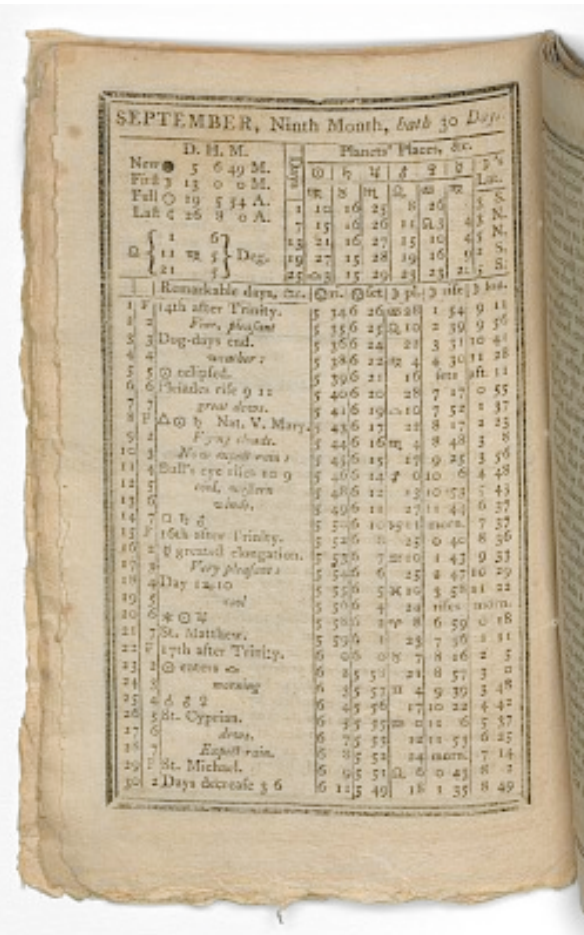 SEPTEMBER, Ninth Month, hath 30 Days.
D. H. M.
New ● 5 6 49 M.
First ☽ 13 0 0 M.
Full ○ 19 5 54 A.
Last ☾ 26 8 0 A.
☊ { 1 6
11 ♍ 5 } Deg.
21 5
Planets' Places, &c.
Days ☉ ♄ ♃ ♂ ♀ ☿ ☽'s
♍ ♉ ♏ ♌ ♎ ♍ Lat.
1 10 16 25 8 26 5 S.
7 15 16 26 11 ♎ 3 4 N.
13 21 16 27 15 10 4 N.
19 27 15 28 19 16 9 S.
25 ♎ 3 15 29 23 23 S.
Remarkable days, &c. ☉ri. ☉set ☽ pl. ☽ rise ☽ sou.
1 F 14th after Trinity. 5 34 6 26 28 1 54 9 11
2 2 Fine, pleasant 5 35 6 25 ♌ 10 2 39 9 56
3 3 Dog-days end. 5 36 6 24 22 3 31 10 41
4 4 weather: 5 38 6 22 ♍ 4 4 30 11 28
5 5 ☉ eclipsed. 5 39 6 21 16 sets aft. 11
6 6 Pleiades rise 9 11 5 40 6 20 28 7 17 0 55
7 7 great dews. 5 41 6 19 ♎ 10 7 52 1 37
8 F △ ☉ ♄ Nat. V. Mary. 5 43 6 17 22 8 17 2 23
9 2 Flying clouds. 5 44 6 16 ♏ 4 8 48 3 8
10 3 Now expect rain: 5 45 6 15 17 9 25 3 56
11 4 Bull's eye rises 10 9 5 46 6 14 ♐ 0 10 6 4 48
12 5 cool, western 5 48 6 12 13 10 53 5 43
13 6 winds. 5 49 6 11 27 11 43 6 37
14 7 □ ♄ ♂ 5 50 6 10 ♑ 11 morn. 7 37
15 F 16th after Trinity. 5 52 6 8 25 0 40 8 36
16 2 ☿ greatest elongation. 5 53 6 7 ♒ 10 1 43 9 33
17 3 Very pleasant: 5 54 6 6 25 2 47 10 29
18 4 Day 12 10 5 55 6 5 ♓ 10 3 58 11 22
19 5 cool 5 56 6 4 24 rises morn.
20 6 ⚹ ☉ ♃ 5 58 6 2 ♈ 8 6 59 0 18
21 7 St. Matthew. 5 59 6 1 23 7 36 1 11
22 F 17th after Trinity. 6 0 6 0 ♉ 7 8 16 2 5
23 2 ☉ enters ♎ 6 2 5 58 21 8 57 3 0
24 3 morning 6 3 5 57 ♊ 4 9 39 3 48
25 4 ☌ ♂ ♀ 6 4 5 56 17 10 22 4 42
26 5 St. Cyprian. 6 5 5 55 ♋ 0 11 6 5 37
27 6 dews. 6 7 5 53 12 11 53 6 25
28 7 Expect rain. 6 8 5 52 24 morn. 7 14
29 F St. Michael. 6 9 5 51 ♌ 6 0 43 8 2
30 2 Days decrease 3 6 6 11 5 49 18 1 35 8 49